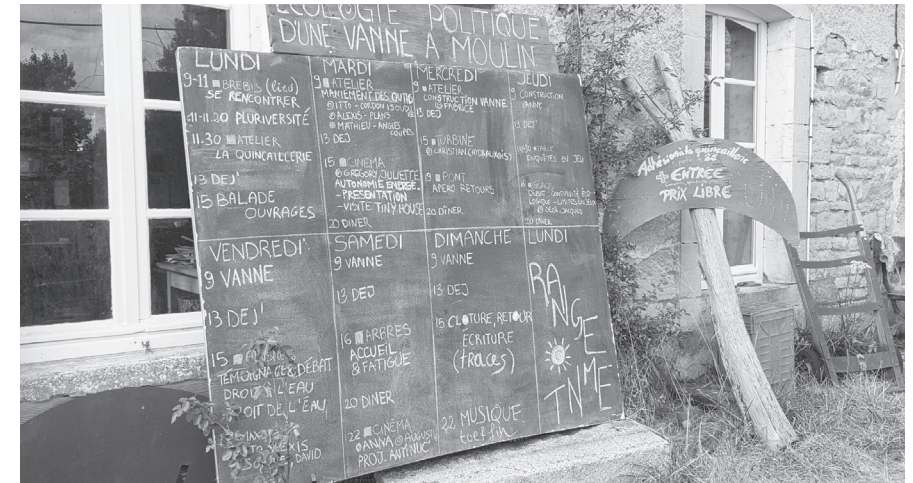 ÉCOLOGIE POLITIQUE
D'UNE VANNE À MOULIN
LUNDI
9-11 BREBIS (lieu)
SE RENCONTRER
11-11.20 PLURIVERSITÉ
11.30 ATELIER
LA QUINCAILLERIE
13 DEJ'
15 BALADE
OUVRAGES
MARDI
9 ATELIER
MANIEMENT DES OUTILS
@ ALEXIS - PLANS
@ MATHIEU - ANGLES
COUPES
13 DEJ
15 CINEMA
@ GREGORY, JULIETTE
AUTONOMIE ENERGIE
- PRESENTATION
- VISITE TINY HOUSE
20 DINER
MERCREDI
9 ATELIER
CONSTRUCTION VANNE
@ FABRICE
13 DEJ
15 TURBINE
@ CHRISTIAN
19 PONT
APERO RETOURS
20 DÎNER
JEUDI
9 CONSTRUCTION
VANNE
13 DEJ'
ENQUÊTES EN JEU
20 DINER
VENDREDI
9 VANNE
13 DEJ'
15
TÉMOIGNAGE & DÉBAT
DROIT À L'EAU
DROIT DE L'EAU
DAVID
SAMEDI
9 VANNE
13 DEJ
16 ARBRES
ACCUEIL
& FATIGUE
20 DINER
22 CINÉMA
@ ANNA @ AUGUST
PROJ. ANTINUC
DIMANCHE
9 VANNE
13 DEJ
15 CLOTURE, RETOUR
ÉCRITURE
(traces)
22 MUSIQUE
LUNDI
RA
NGE
ME
TN
Adhésion à la quincaillerie
+ ENTRÉE
PRIX LIBRE